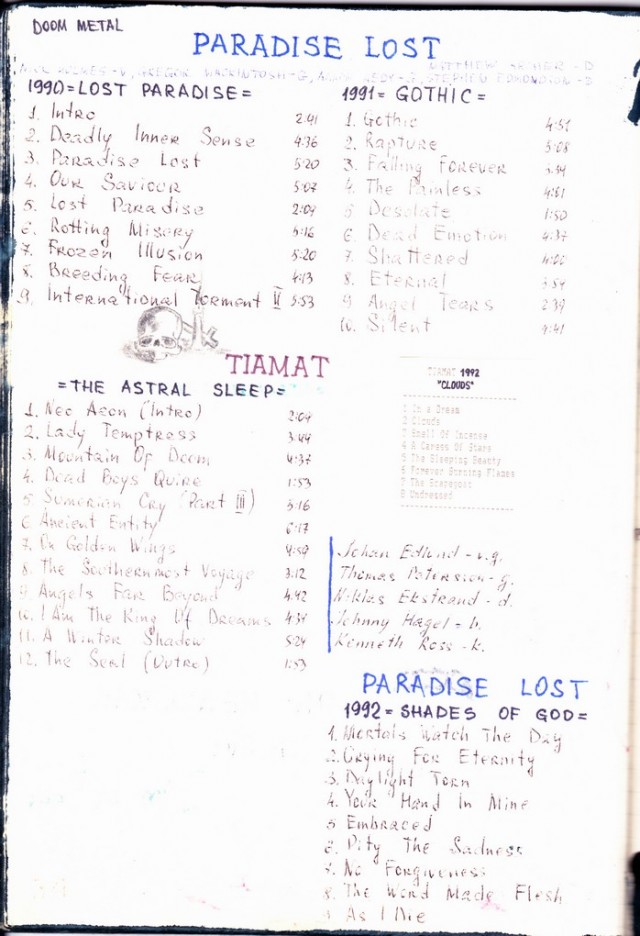 DOOM METAL
PARADISE LOST
MATTHEW ARCHER - D
NICK HOLMES - V, GREGOR MACKINTOSH - G, AARON AEDY - G, STEPHEN EDMONDSON - B
1990 = LOST PARADISE =
1. Intro 2:41
2. Deadly Inner Sense 4:36
3. Paradise Lost 5:20
4. Our Saviour 5:07
5. Lost Paradise 2:09
6. Rotting Misery 5:16
7. Frozen Illusion 5:20
8. Breeding Fear 4:13
9. International Torment II 5:53
1991 = GOTHIC =
1. Gothic 4:51
2. Rapture 5:08
3. Falling Forever
4. The Painless 4:01
5 Desolate 1:50
6. Dead Emotion 4:37
7. Shattered 4:00
8. Eternal 3:54
9 Angel Tears 2:39
10. Silent
TIAMAT
=THE ASTRAL SLEEP=
1. Neo Aeon (Intro) 2:04
2. Lady Temptress 3:44
3. Mountain Of Doom 4:37
4. Dead Boys Quire 1:53
5 Sumerian Cry (Part III) 5:16
6 Ancient Entity 6:17
7. On Golden Wings 4:59
8. The Southernmost Voyage 3:12
9. Angels Far Beyond 4:42
10. I Am The King Of Dreams 4:34
11. A Winter Shadow 5:24
12. The Seal (Outro) 1:53
TIAMAT 1992
"CLOUDS"
1 In a Dream
2 Clouds
3 Smell Of Incense
4 A Caress Of Stars
5 The Sleeping Beauty
6 Forever Burning Flames
7 The Scapegoat
8 Undressed
Johan Edlund - v.g.
Thomas Petersson - g.
Niklas Ekstrand - d.
Johnny Hagel - b.
Kenneth Ross - k.
PARADISE LOST
1992 = SHADES OF GOD =
1. Mortals Watch The Day
2. Crying For Eternity
3. Daylight Torn
4. Your Hand In Mine
5 Embraced
6. Pity The Sadness
7. No Forgiveness
8. The Word Made Flesh
9 As I Die